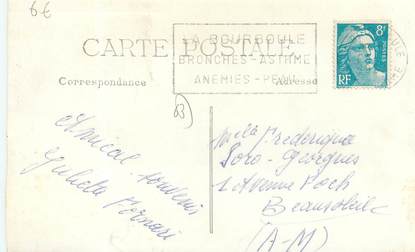 6€
LA BOURBOULE
BRONCHES-ASTHME
ANEMIES-PEAU
CARTE POSTALE
Correspondance
Adresse
8F
POSTES
RF
Amical souvenir
Melle Frederique
Soro-Georges
1 Avenue Foch
Beausoleil
(A-M)